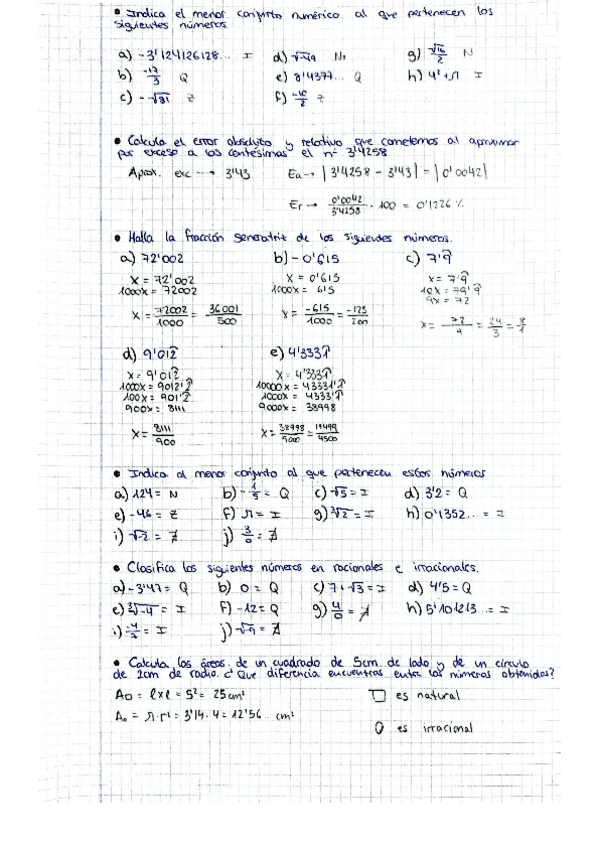 • Indica el menor conjunto numérico al que pertenecen los
siguientes números.
a) -3'124126128... I d) √-49 No g) √16/2 N
b) -17/3 Q e) 8'4377... Q h) 4'+π I
c) -√81 Z f) -10/2 Z
• Calcula el error absoluto y relativo que cometemos al aproximar
por exceso a las centésimas el nº 3'4258
Aprox. exc → 3'43 Ea → |3'4258 - 3'43| = |0'0042|
Er → 0'0042/3'4258 · 100 = 0'1226 %
• Halla la fracción generatriz de los siguientes números.
a) 72'002 b) -0'615 c) 7'9̂
x = 72'002 x = 0'615 x = 7'9̂
1000x = 72002 1000x = 615 10x = 79'9̂
9x = 72
x = 72002/1000 = 36001/500 x = -615/1000 = -123/200 x = 72/9 = 24/3 = 8/1
d) 9'012̂ e) 4'3331̂
x = 9'012̂ x = 4'3331̂
1000x = 9012'2̂ 10000x = 43331'1̂
100x = 901'2̂ 1000x = 4333'1̂
900x = 8111 9000x = 38998
x = 8111/900 x = 38998/9000 = 19499/4500
• Indica el menor conjunto al que pertenecen estos números
a) 124 = N b) -1/5 = Q c) √5 = I d) 3'2 = Q
e) -46 = Z f) π = I g) ³√2 = I h) 0'1352... = I
i) √-2 = ∄ j) 3/0 = ∄
• Clasifica los siguientes números en racionales e irracionales.
a) -3'47 = Q b) 0 = Q c) 7+√3 = I d) 4'5 = Q
e) ³√-4 = I f) -12 = Q g) 4/0 = ∄ h) 5'101213... = I
i) = I j) = ∄
• Calcula las áreas de un cuadrado de 5cm de lado y de un círculo
de 2cm de radio. ¿Que diferencia encuentras entre los números obtenidos?
A□ = l×l = 5² = 25 cm² □ es natural
A○ = π·r² = 3'14·4 = 12'56... cm²
O es irracional